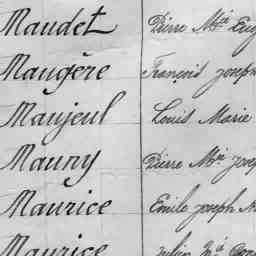 Maudet Pierre Mie Eug
Maugère François Joseph
Maujeul Louis Marie
Mauny Pierre Mie Josep
Maurice Emile Joseph M
Maurice Julien